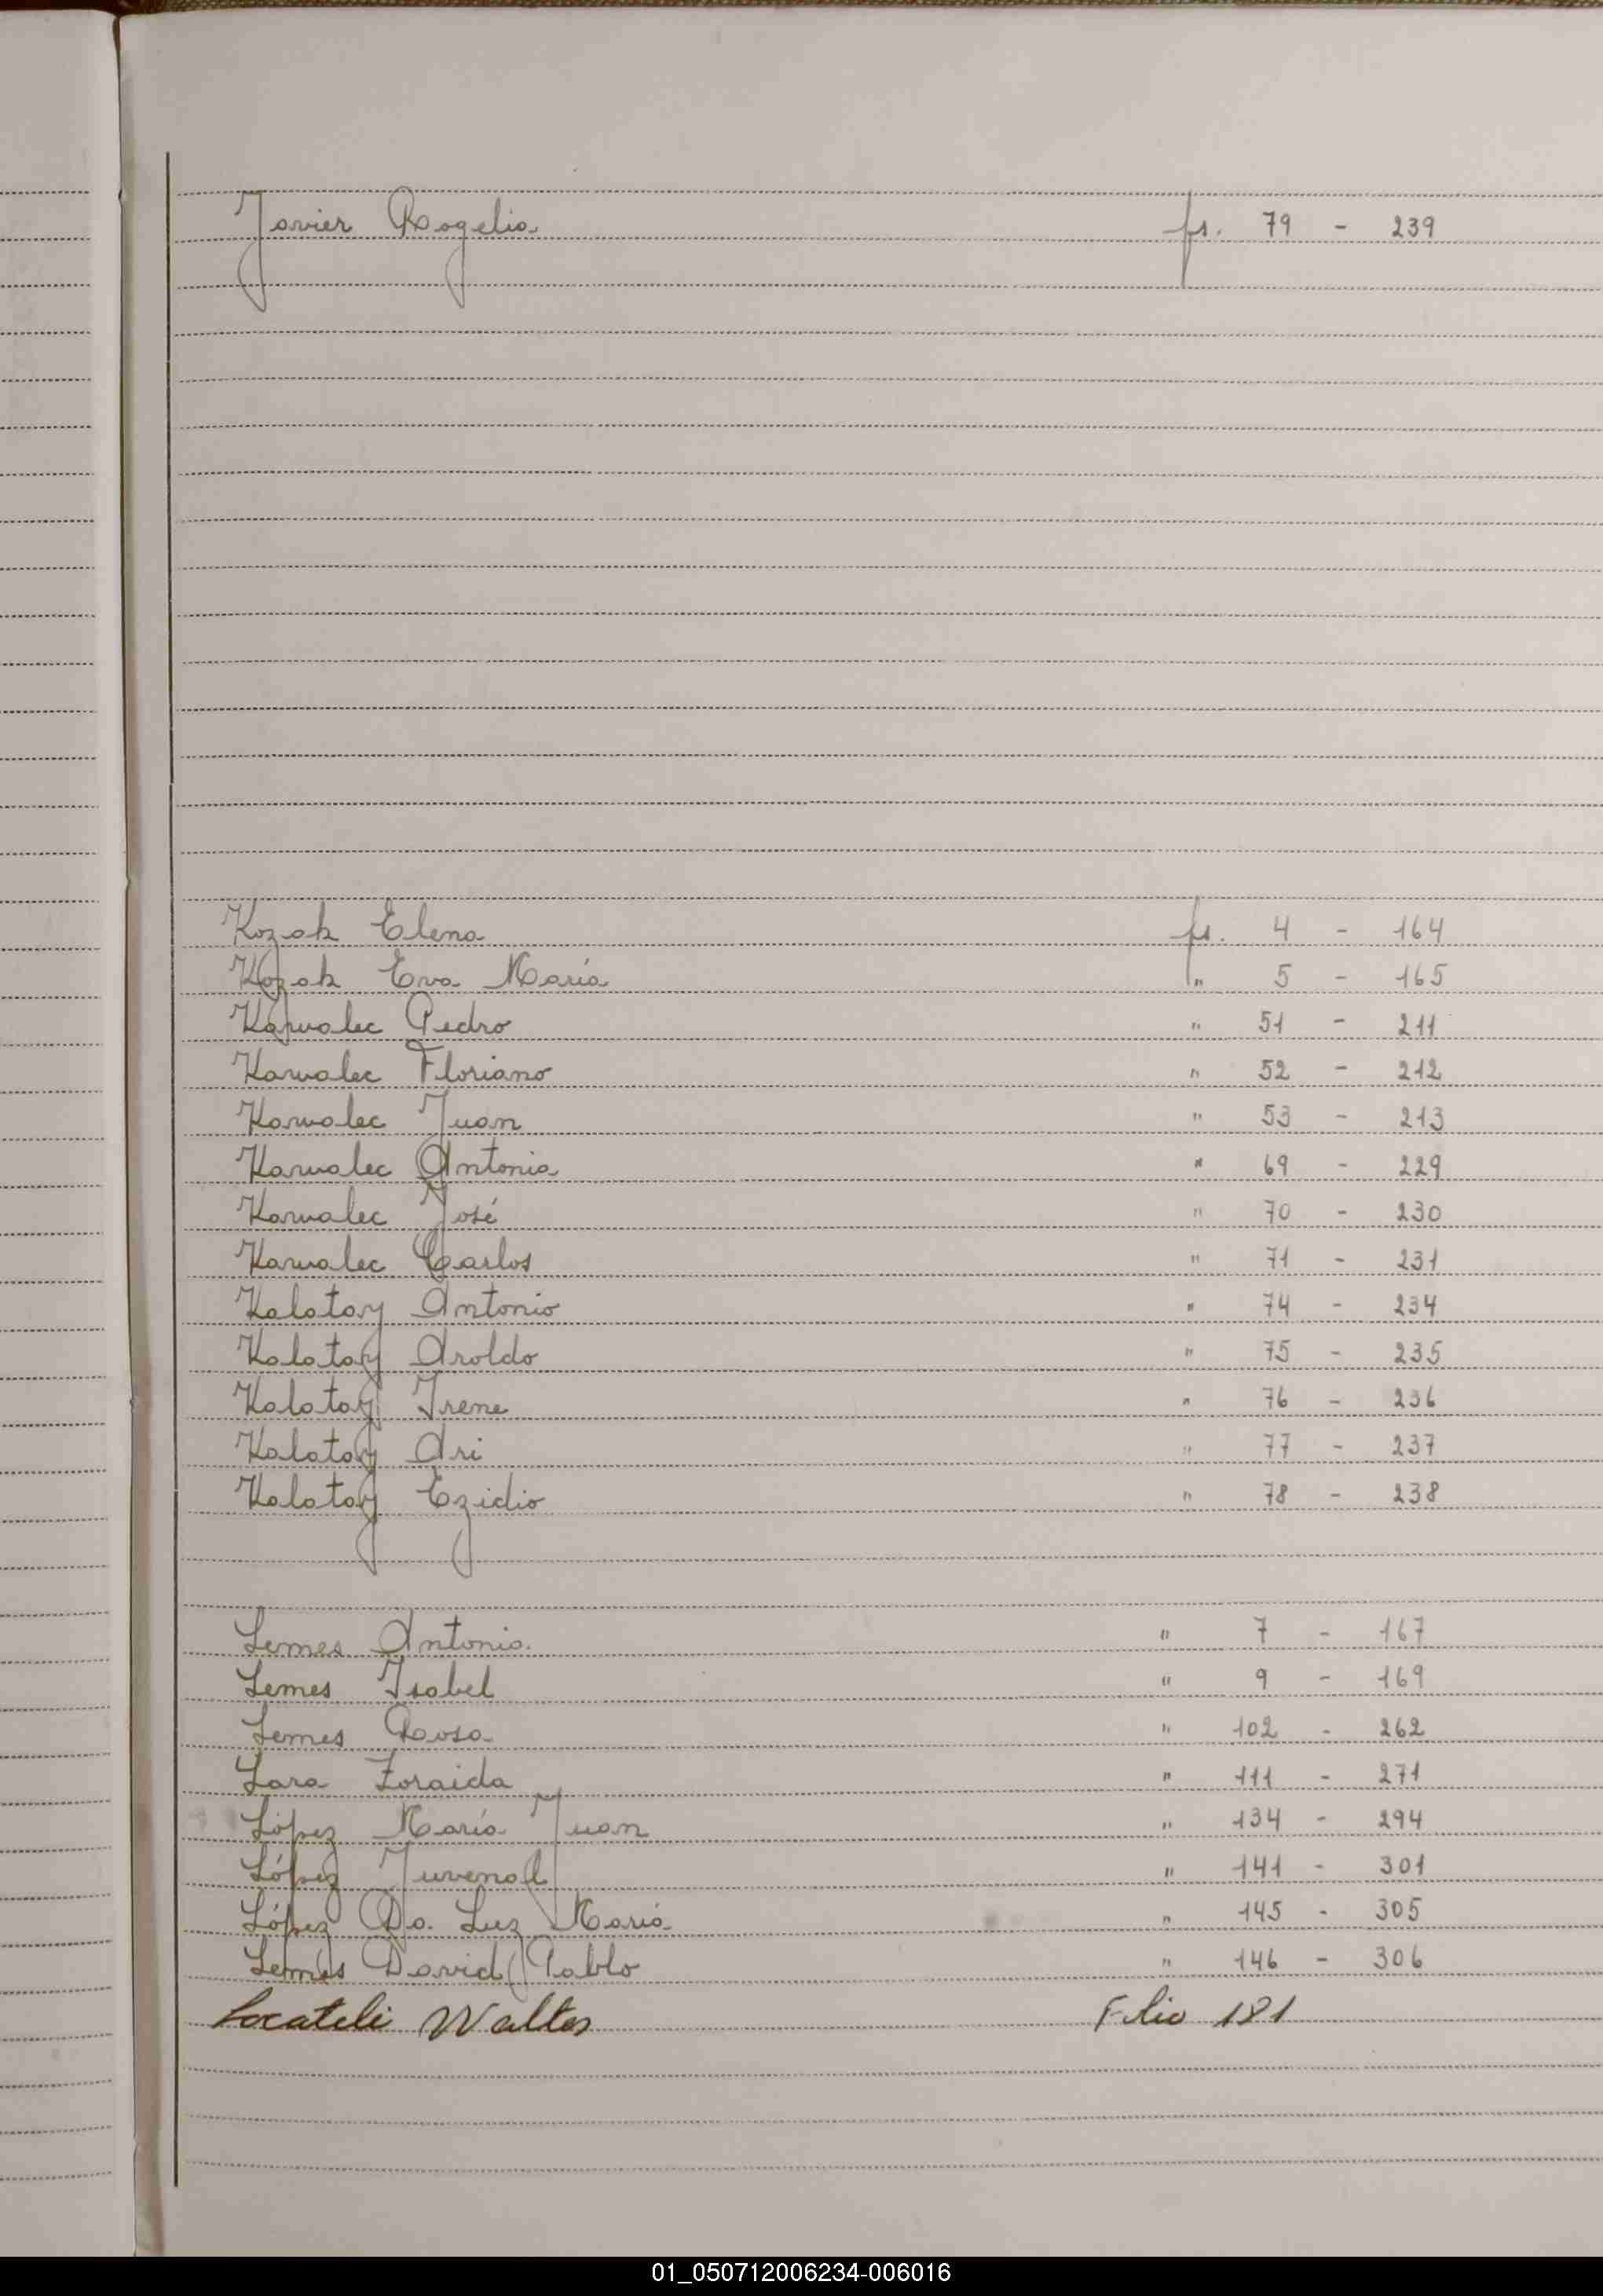 Javier Rogelio fs. 79 - 239
Kozak Elena fs. 4 - 164
Kozak Eva María " 5 - 165
Karvalec Pedro " 51 - 211
Karvalec Floriano " 52 - 212
Karvalec Juan " 53 - 213
Karvalec Antonia " 69 - 229
Karvalec José " 70 - 230
Karvalec Carlos " 71 - 231
Kalatay Antonio " 74 - 234
Kalatay Aroldo " 75 - 235
Kalatay Irene " 76 - 236
Kalatay Ari " 77 - 237
Kalatay Ezidio " 78 - 238
Lemes Antonio " 7 - 167
Lemes Isabel " 9 - 169
Lemes Rosa " 102 - 262
Lara Zoraida " 111 - 271
López María Juan " 134 - 294
López Juvenal " 141 - 301
López Da. Luz María " 145 - 305
Lemes David Pablo " 146 - 306
Locateli Walter Folio 181
01_050712006234-006016